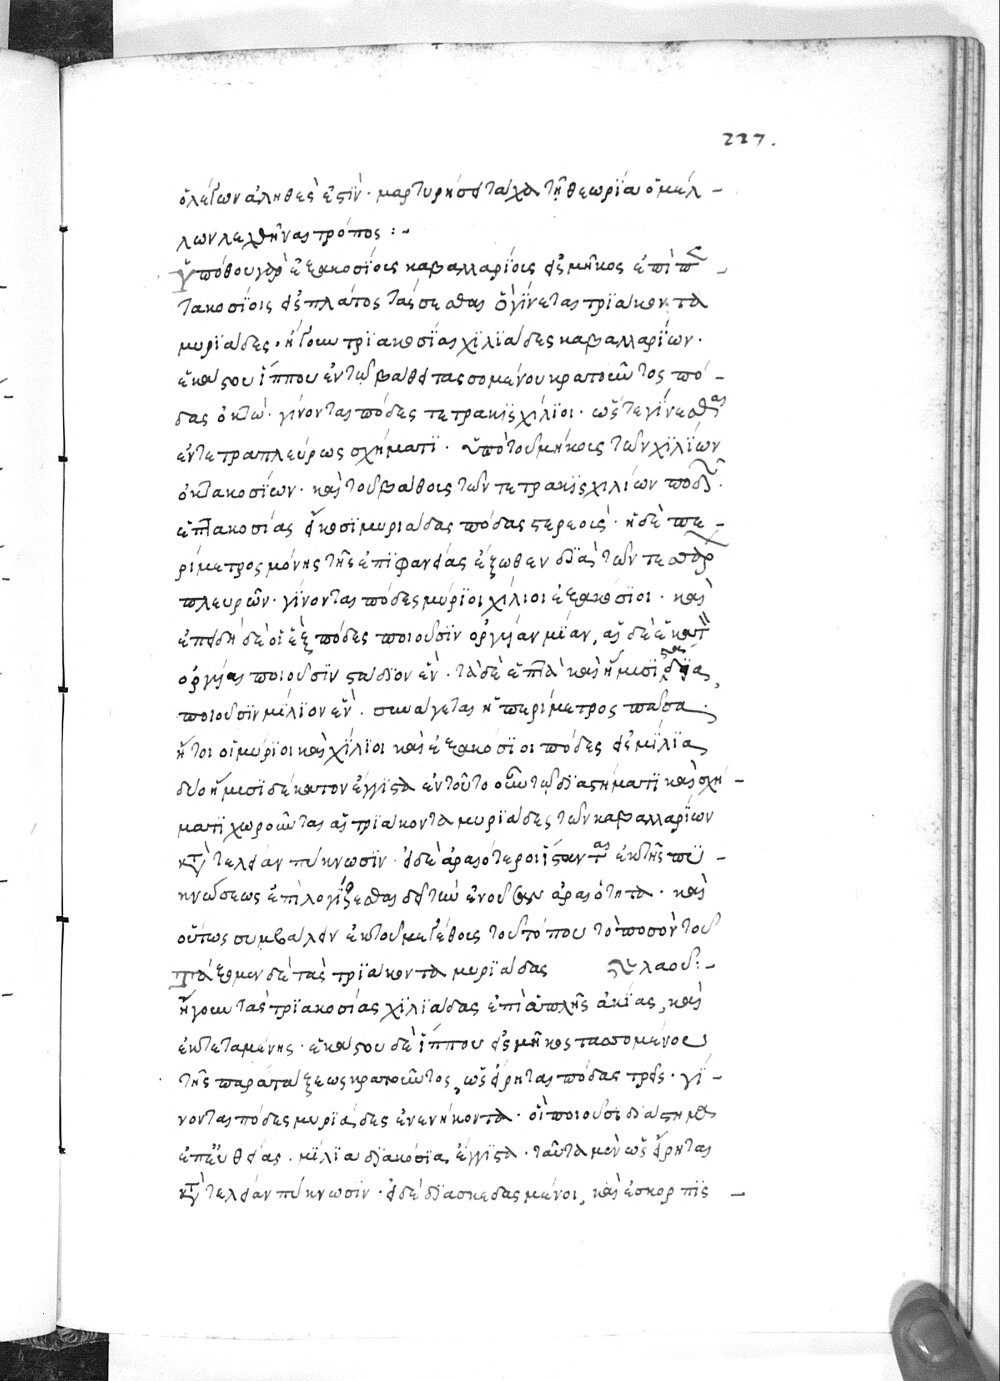 227.
ὁ λέγων ἀληθές ἐστίν · μαρτυρήσει τάχα τῇ θεωρία ὁ μέλ-
λων λεχθῆναι τρόπος :-
Ὑπόθου γὰρ ἑξακοσίοις καβαλλαρίοις εἰς μῆκος ἐπὶ πεν-
τακοσίοις εἰς πλάτος τάσσεσθαι ὃ γίνεται τριάκοντα
μυριάδες · ἤγουν τριακοσίαι χιλιάδες καβαλλαρίων ·
ἑκάστου ἵππου ἐν τῷ βάθει τασσομένου κρατοῦντος πό-
δας ὀκτώ · γίνονται πόδες τετρακισχίλιοι · ὥστε γίνεσθαι
ἐν τετραπλεύρως σχήματι · ὑπὸ τοῦ μήκους τῶν χιλίων
ὀκτακοσίων · καὶ τοῦ βάθους τῶν τετρακισχιλίων ποδῶν ·
ἑπτακοσίας εἴκοσι μυριάδας πόδας στερεούς · ἡ δὲ πε-
ρίμετρος μόνης τῆς ἐπιφανείας ἔξωθεν διὰ τῶν τεσσάρων
πλευρῶν · γίνονται πόδες μύριοι χίλιοι ἑξακόσιοι · καὶ
ἐπειδὴ δὲ οἱ ἓξ πόδες ποιοῦσιν ὀργυιὰν μίαν, αἱ δὲ ἑκατὸν
ὀργυιὰς ποιοῦσιν στάδιον ἕν · τὰ δὲ ἑπτὰ καὶ ἥμισι στάδια,
ποιοῦσιν μίλιον ἕν · συνάγεται ἡ περίμετρος πᾶσα
ἤτοι οἱ μύριοι καὶ χίλιοι καὶ ἑξακόσιοι πόδες εἰς μίλια
δύο ἥμισι δέκατον ἔγγιστα ἐν τούτῳ οὖν τῷ διαστήματι καὶ σχή-
ματι χωροῦνται αἱ τριάκοντα μυριάδες τῶν καβαλλαρίων
κατὰ τελείαν πύκνωσιν · εἰ δὲ ἀραιότεροι ἵσταντας ἐκ τῆς πυ-
κνώσεως ἐπιλογίζεσθαι δεῖ τὴν ἐνοῦσαν ἀραιότητα · καὶ
οὕτως συμβαλεῖν ἐκ τοῦ μεγέθους τοῦ τόπου τὸ ποσὸν τοῦ
Τάξωμεν δὲ τὰς τριάκοντα μυριάδας λαοῦ :-
ἤγουν τὰς τριακοσίας χιλιάδας ἐπὶ ἁπλῆς ἀκίας, καὶ
ἐκτεταμένης · ἑκάστου δὲ ἵππου εἰς μῆκος τασσομένου
τῆς παρατάξεως κρατοῦντος, ὡς εἴρηται πόδας τρεῖς · γί-
νονται πόδες μυριάδες ἐνενήκοντα · οἳ ποιοῦσι διάστημα
ἐπ' εὐθείας · μίλια διακόσια ἔγγιστα · ταῦτα μὲν ὡς εἴρηται
κατὰ τελείαν πύκνωσιν · εἰ δὲ διασκεδασμένοι, καὶ ἐσκορπισ-